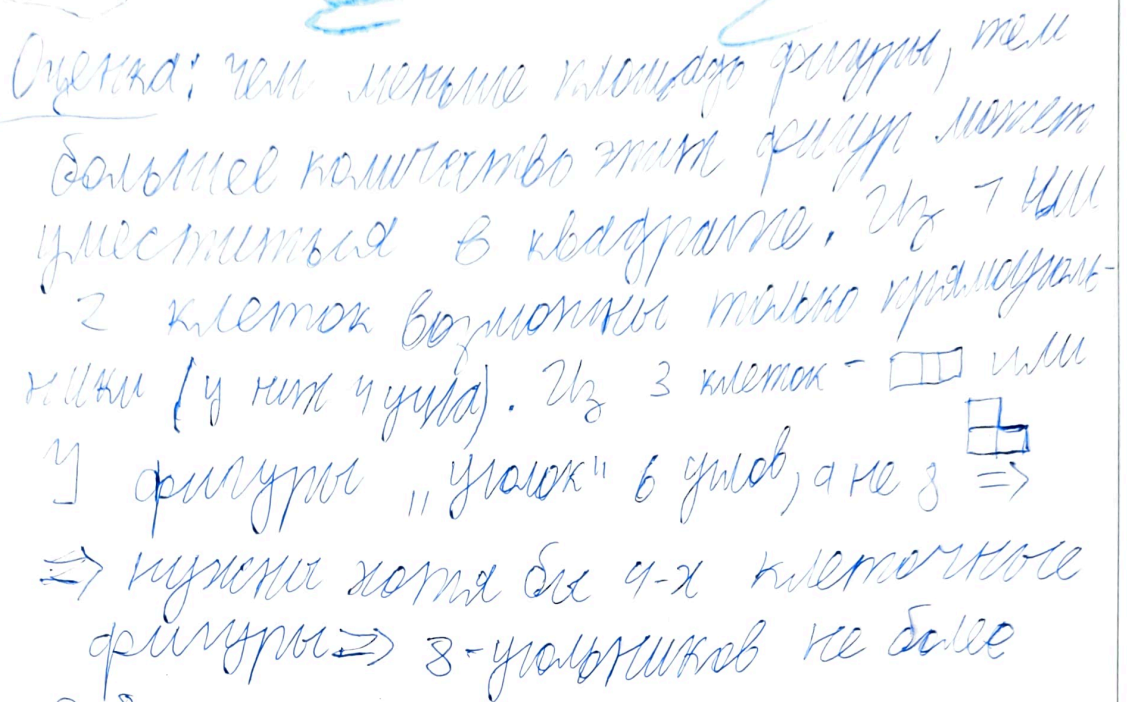 Оценка: чем меньше площадь фигуры, тем
большее количество этих фигур может
уместиться в квадрате. Из 1 или
2 клеток возможны только прямоуголь-
ники (у них 4 угла). Из 3 клеток - или
У фигуры "уголок" 6 углов, а не 8 =>
=> нужны хотя бы 4-х клеточные
фигуры => 8-угольников не более